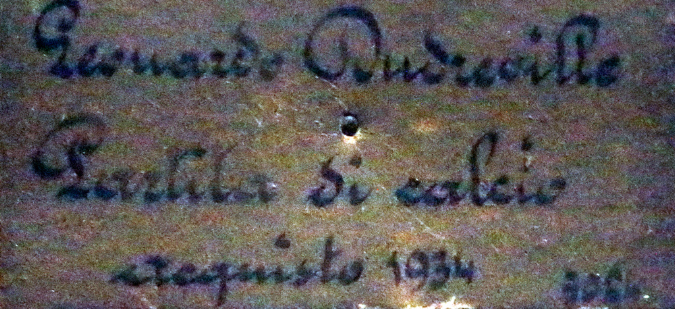 Leonardo Dudreville
Partita di calcio
acquisto 1934